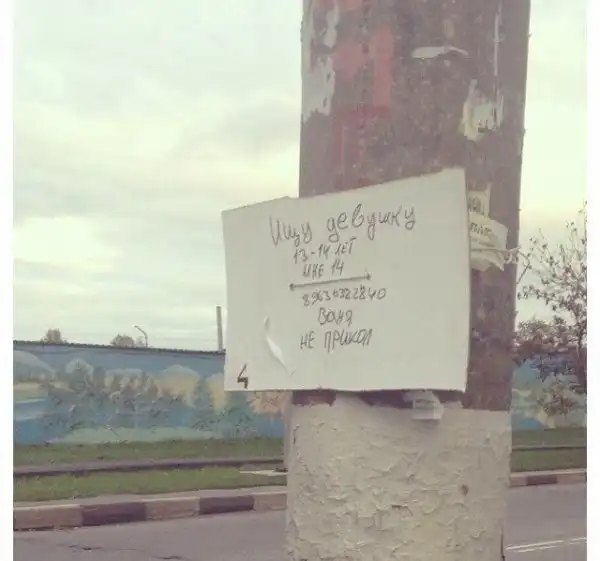 Ищу девушку
13-14 лет
мне 14
89636382840
Ваня
не прикол
4